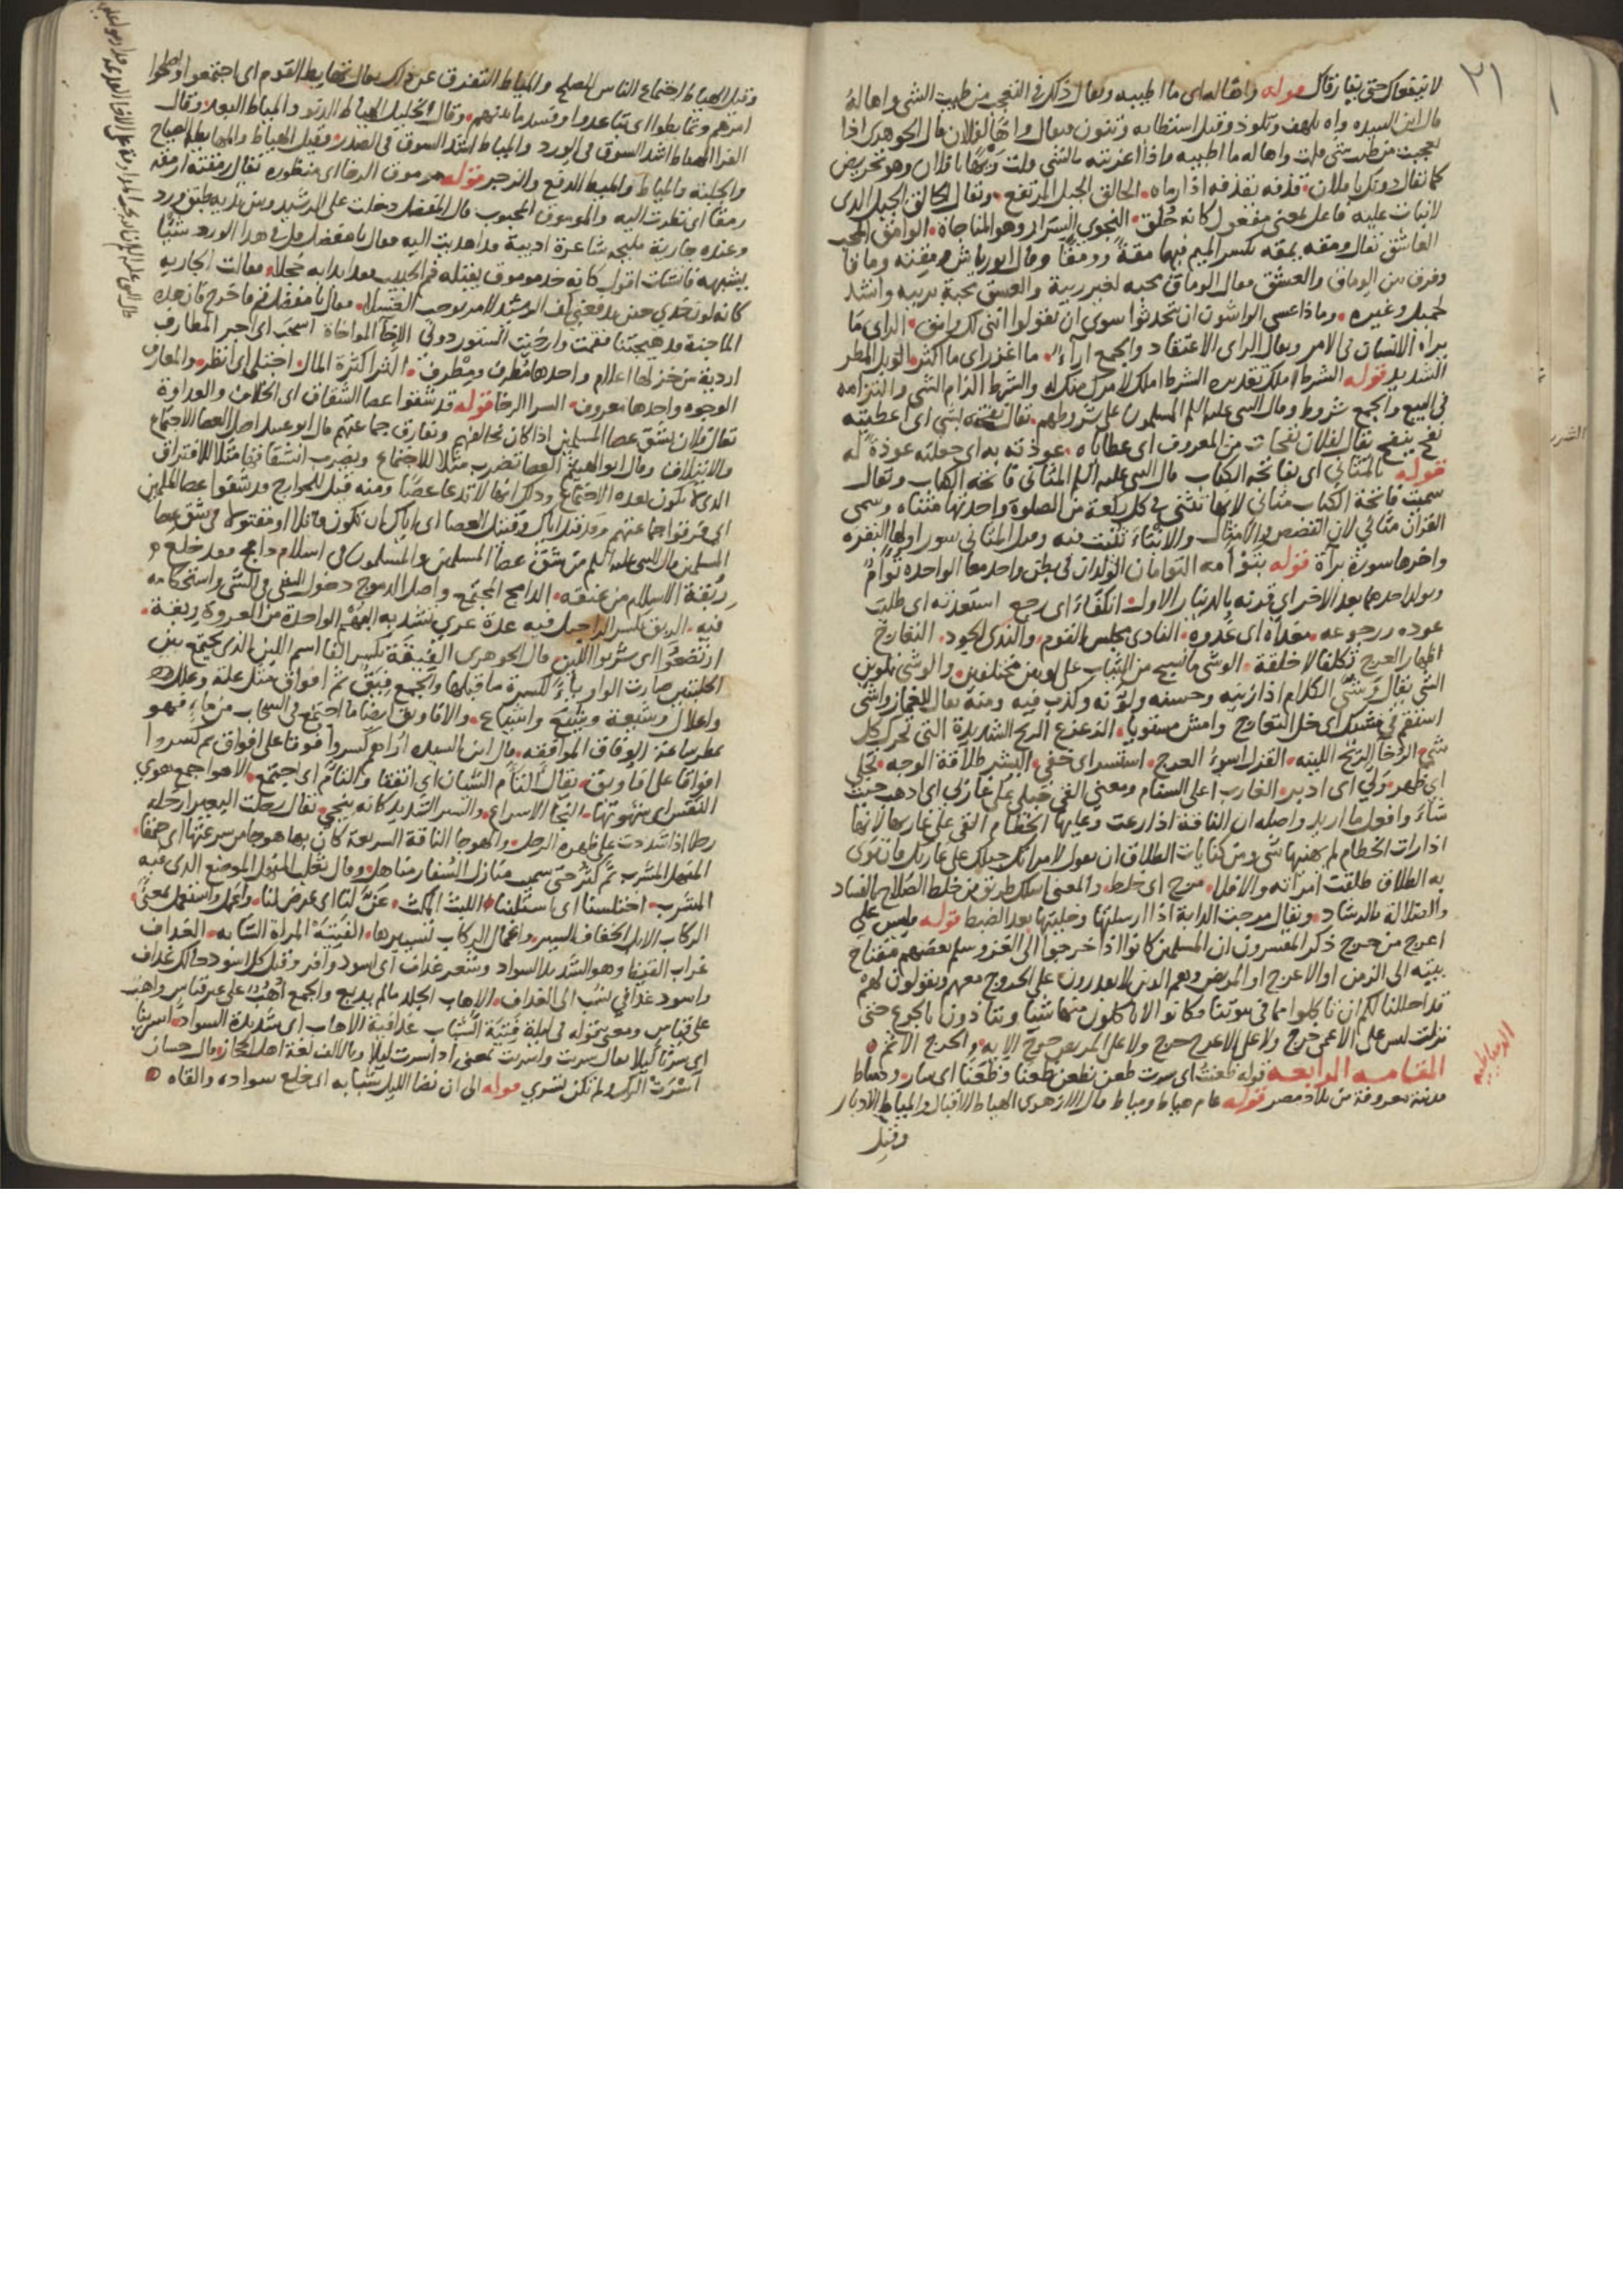 ٢١
لا ينفعك حتى يفارقك قوله واها له اى ما اطيبه ويقال ذلك فى التعجب من طيب الشى واها له
قال ابن السيده واه تلهف وتلوذ وقيل استطابه وتنون فيقال واهًا لفلان قال الجوهرى اذا
تعجبت من طيب شى قلت واها له ما اطيبه واذا اغريته بالشى قلت ويها يا فلان وهو تحريض
كما يقال دونك يا فلان قذفه يقذفه اذا رماه الحالق الجبل المرتفع ويقال الحالق الجبل الذى
لا نبات عليه فاعل بمعنى مفعول كانه حُلق النجوى السرار وهو المناجاة الوامق المحب
العاشق يقال ومقه يمقه بكسر الميم فيهما مقةً وومقًا وقال ابو رياش ومقته وماقا
وفرق بين الوماق والعشق فقال الوماق محبه لغير ريبة والعشق محبة بريبه وانشد
لجميل وغيره وماذا عسى الواشون ان يتحدثوا سوى ان يقولوا اننى لك وامق الراى ما
يراه الانسان فى الامر ويقال الراى الاعتقاد والجمع اراء ما اغزر اى ما اكثر الوبل المطر
الشديد قوله الشرط املك تقديره الشرط املك لامرك منك له والشرط الزام الشى والتزامه
فى البيع والجمع شروط وقال النبى عليه السلم المسلمون على شروطهم يقال نفحته بشى اى اعطيته
نفح ينفح يقال لفلان نفحات من المعروف اى عطاياه عوذته به اى جعلته عوذة له
قوله بالمثانى اى بفاتحه الكتاب قال النبى عليه السلم المثانى فاتحة الكتاب ويقال
سميت فاتحة الكتاب مثانى لانها تثنى فى كل ركعة من الصلوة واحدتها مثناه وسمى
القران مثانى لان القصص والامثال والانباء ثنيت فيه وقيل المثانى سور اولها البقره
واخرها سورة براة قوله بتوأمه التوامان الولدان فى بطن واحد معا الواحده توأم
ويولد احدهما بعد الاخر اى قرنه بالدينار الاول انكفاء اى رجع استعدته اى طلبت
عوده ورجوعه مغداه اى غدوه النادى مجلس القوم والندى الجود التعارج
اظهار العرج تكلفا لا خلقة الوشى ما نسج من الثياب على لونين مختلفين والوشى تلوين
الشى يقال وشى الكلام اذا زينه وحسنه ولونه وكذب فيه ومنه يقال للغماز واشى
استقم فى مشيك اى خل التعارج وامش مستويا الزعزع الريح الشديدة التى تحرك كل
شى الرخا الريح اللينه القزل اسوء العرج استسر اى خفى البشر طلاقة الوجه تجلى
اى ظهر ولى اى ادبر الغارب اعلى السنام ومعنى القى حبلى على غاربى اى اذهب حيث
شاء وافعل ما اريد واصله ان الناقة اذا رعت وعليها الخطام القى على غاربها لانها
اذا رات الخطام لم يهنها شى ومن كنايات الطلاق ان يقول لامراته حبلك على غاربك فان نوى
به الطلاق طلقت امراته والا فلا مرج اى خلط والمعنى اسلك طريق من خلط الصلاح بالفساد
والضلالة بالرشاد ويقال مرجت الدابة اذا ارسلتها وخليتها بعد الضبط قوله وليس على
اعرج من حرج ذكر المفسرون ان المسلمين كانوا اذا خرجوا الى الغزو سلم بعضهم مفتاح
بيته الى الزمن او الاعرج او المريض وهم الذين لا يقدرون على الخروج معهم ويقولون لهم
قد احللنا لكم ان تاكلوا مما فى بيوتنا فكانوا لا ياكلون منها شيا ويتاذون بالجوع حتى
نزلت ليس على الاعمى حرج ولا على الاعرج حرج ولا على المريض حرج الايه والحرج الاثم
المقامه الرابعه قوله ظعنت اى سرت ظعن يظعن ظعنا وظعَنًا اى سار ودمياط
مدينة معروفة من بلاد مصر قوله عام هياط ومياط قال الازهرى الهياط الاقبال والمياط الادبار
الدمياطيه
وقيل
وقيل الهياط اجتماع الناس للصلح والمياط التفرق عن ذلك يقال تهايط القوم اى اجتمعوا واصلحوا
امرهم وتمايطوا اى تباعدوا وفسد ما بينهم وقال الخليل الهياط الدنو والمياط البعد وقال
الفرا الهياط اشد السوق فى الورد والمياط اشد السوق فى الصدر وقيل الهياط والمهايطه الصياح
والجلبة والمياط والميط الدفع والزجر قوله مرموق الرخا اى منظوره يقال رمقته ارمقه
رمقا اى نظرت اليه والموموق المحبوب قال المفضل دخلت على الرشيد وبين يديه طبق ورد
وعنده جارية مليحه شاعرة اديبة قد اهديت اليه فقال يا مفضل قل فى هذا الورد شيًا
يشبهه فانشات اقول كانه خد موموق يقبله فم الحبيب وقد ابدا به خجلا فقالت الجاريه
كانه لون خدى حين يدفعنى كف الرشيد لامر يوجب الغسلا فقال يا مفضل قم فاخرج فان هذه
الماجنة قد هيجتنا فقمت وارخيت الستور دونى الاخا المواخاة اسحب اى اجر المطارف
اردية من خز لها اعلام واحدها مُطرف ومِطرف الثرا كثرة المال اجتلى اى انظر والمعارف
الوجوه واحدها معروف السرا الرخا قوله قد شقوا عصا الشقاق اى الخلاف والعداوة
يقال فلان يشق عصا المسلمين اذا كان يخالفهم ويفارق جماعتهم قال ابو عبيد اصل العصا الاجتماع
والايتلاف وقال ابو الهيثم العصا تضرب مثلا للاجتماع ويضرب انشقاقها مثلا للافتراق
الذى لا يكون بعده الاجتماع وذلك انها لا تدعا عصًا ومنه قيل للخوارج قد شقوا عصا المسلمين
اى فرقوا جماعتهم وقد قيل اياك وقتيل العصا اى اياك ان تكون قاتلا او مقتولا فى شق عصا
المسلمين قال النبى عليه السلم من شق عصا المسلمين والمسلمون فى اسلام دامج فقد خلع
ربقة الاسلام من عنقه الدامج المجتمع واصل الدموج دخول الشى فى الشى واستحكامه
فيه الربق بكسر الرا حبل فيه عدة عرى يشد به البهم الواحدة من العروة ربقة
ارتضعوا اى شربوا اللبن قال الجوهرى الفيقة بكسر الفا اسم اللبن الذى يجتمع بين
الحلبتين صارت الواو ياءً لكسرة ما قبلها والجمع فِيَقٌ ثم افواق مثل علة وعلل
واعلال وشيعة وشيع واشياع والافاويق ايضا ما اجتمع فى السحاب من ماء فهو
يمطر ساعة الوفاق الموافقه قال ابن السيده اراهم كسروا فوقا على افواق ثم كسروا
افواقا على افاويق يقال التام الشيئان اى اتفقا والتام اى اجتمع الاهوا جمع هوى
النفس اى شهوتها النجا الاسراع والسير الشديد كانه ينجى يقال رحلت البعير ارحله
رحلا اذا شددت على ظهره الرحل والهوجا الناقة السريعة كان بها هوجا من سرعتها اى حمقا
المنهل المشرب ثم كثر حتى سمى منازل السفار مناهل وقال ثعلب المنهل الموضع الذى فيه
المشرب اختلسنا اى استلبنا اللبث المكث عن لنا اى عرض لنا واعمل واستعمل بمعنًى
الركاب الابل الخفاف السير واعمال الركاب تسييرها الفَتِيَّة المراة الشابه الغداف
غراب القيظ وهو الشديد السواد وشعر غداف اى اسود وافر وقيل كل اسود حالك غداف
واسود غدافى نسب الى الغداف الاهاب الجلد ما لم يدبغ والجمع اهُبٌ على غير قياس واهب
على قياس ومعنى قوله فى ليلة فتية الشباب غدافية الاهاب اى شديدة السواد اسرينا
اى سرنا ليلا يقال سريت واسريت بمعنى اذا سرت ليلا وبالالف لغة اهل الحجاز قال حسان
اَسْرَتْ اليك ولم تكن تسرى قوله الى ان نضا الليل شبابه اى خلع سواده والقاه